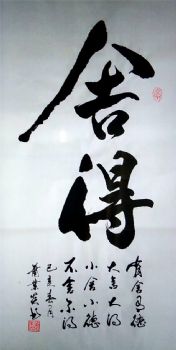 舍得
有舍有得
大舍大得
小舍小得
不舍不得
己亥春月